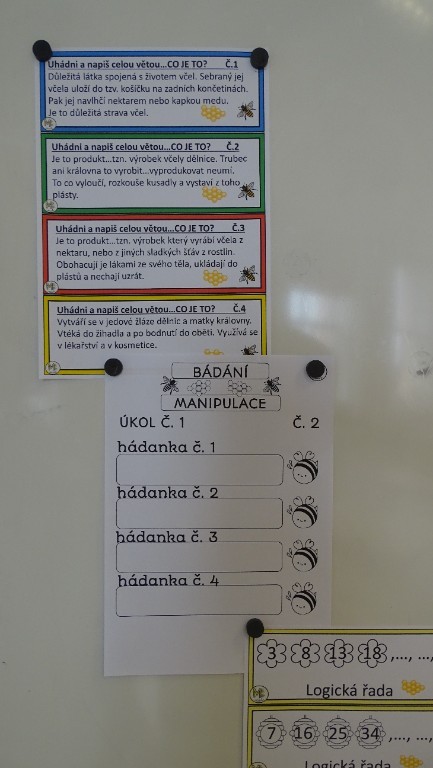 Uhádni a napiš celou větou...CO JE TO? Č.1
Důležitá látka spojená s životem včel. Sebraný jej
včela uloží do tzv. košíčku na zadních končetinách.
Pak jej navlhčí nektarem nebo kapkou medu.
Je to důležitá strava včel.
Uhádni a napiš celou větou...CO JE TO? Č.2
Je to produkt...tzn. výrobek včely dělnice. Trubec
ani královna to vyrobit...vyprodukovat neumí.
To co vyloučí, rozkouše kusadly a vystaví z toho
plásty.
Uhádni a napiš celou větou...CO JE TO? Č.3
Je to produkt...tzn. výrobek který vyrábí včela z
nektaru, nebo z jiných sladkých šťáv z rostlin.
Obohacují je lákami ze svého těla, ukládají do
plástů a nechají uzrát.
Uhádni a napiš celou větou...CO JE TO? Č.4
Vytváří se v jedové žláze dělnic a matky královny.
Vtéká do žihadla a po bodnutí do oběti. Využívá se
v lékařství a v kosmetice.
BÁDÁNÍ
MANIPULACE
ÚKOL Č. 1 Č. 2
hádanka č. 1
hádanka č. 2
hádanka č. 3
hádanka č. 4
3 8 13 18 ,..., ...,
Logická řada
7 16 25 34 ,..., ...,
Logická řada